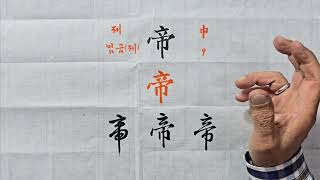 제 帝 巾
임금(제) 9
帝
帝 帝 帝